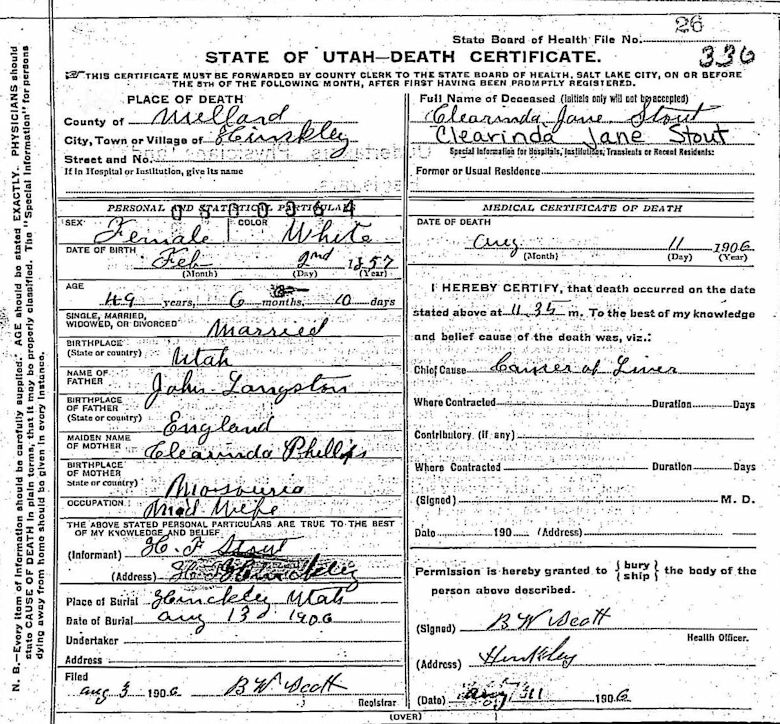 26
State Board of Health File No.
336
STATE OF UTAH—DEATH CERTIFICATE.
THIS CERTIFICATE MUST BE FORWARDED BY COUNTY CLERK TO THE STATE BOARD OF HEALTH, SALT LAKE CITY, ON OR BEFORE
THE 5TH OF THE FOLLOWING MONTH, AFTER FIRST HAVING BEEN PROMPTLY REGISTERED.
N. B.—Every item of information should be carefully supplied. AGE should be stated EXACTLY. PHYSICIANS should
state CAUSE OF DEATH in plain terms, that it may be properly classified. The "Special Information" for persons
dying away from home should be given in every instance.
PLACE OF DEATH
County of Millard
City, Town or Village of Hinkley
Street and No.
If in Hospital or Institution, give its name
PERSONAL AND STATISTICAL PARTICULARS
0500364
SEX Female COLOR White
DATE OF BIRTH Feb 2nd 1857
(Month) (Day) (Year)
AGE
49 years, 6 months, 10 days
SINGLE, MARRIED,
WIDOWED, OR DIVORCED Married
BIRTHPLACE
(State or country) Utah
NAME OF
FATHER John Langston
BIRTHPLACE
OF FATHER
(State or country) England
MAIDEN NAME
OF MOTHER Clearinda Phillips
BIRTHPLACE
OF MOTHER
State or country)
OCCUPATION Mid Wife
THE ABOVE STATED PERSONAL PARTICULARS ARE TRUE TO THE BEST
OF MY KNOWLEDGE AND BELIEF
(Informant) H. F Stout
(Address) Hinckley
Place of Burial Hinckley Utah
Date of Burial Aug 13 1906
Undertaker
Address
Filed
Aug 3 1906 B W Scott
Registrar
Full Name of Deceased (Initials only will not be accepted)
Clearinda Jane Stout
Clearinda Jane Stout
Special Information for Hospitals, Institutions, Transients or Recent Residents:
Former or Usual Residence
MEDICAL CERTIFICATE OF DEATH
DATE OF DEATH
Aug 11 1906
(Month) (Day) (Year)
I HEREBY CERTIFY, that death occurred on the date
stated above at 11 35 m. To the best of my knowledge
and belief cause of the death was, viz.:
Chief Cause Cancer of Liver
Where Contracted Duration Days
Contributory (if any)
Where Contracted Duration Days
(Signed) M. D.
Date 190 (Address)
Permission is hereby granted to { bury ship } the body of the
person above described.
(Signed) B W Scott
Health Officer.
(Address) Hinkley
(Date) Aug 11 1906
(OVER)